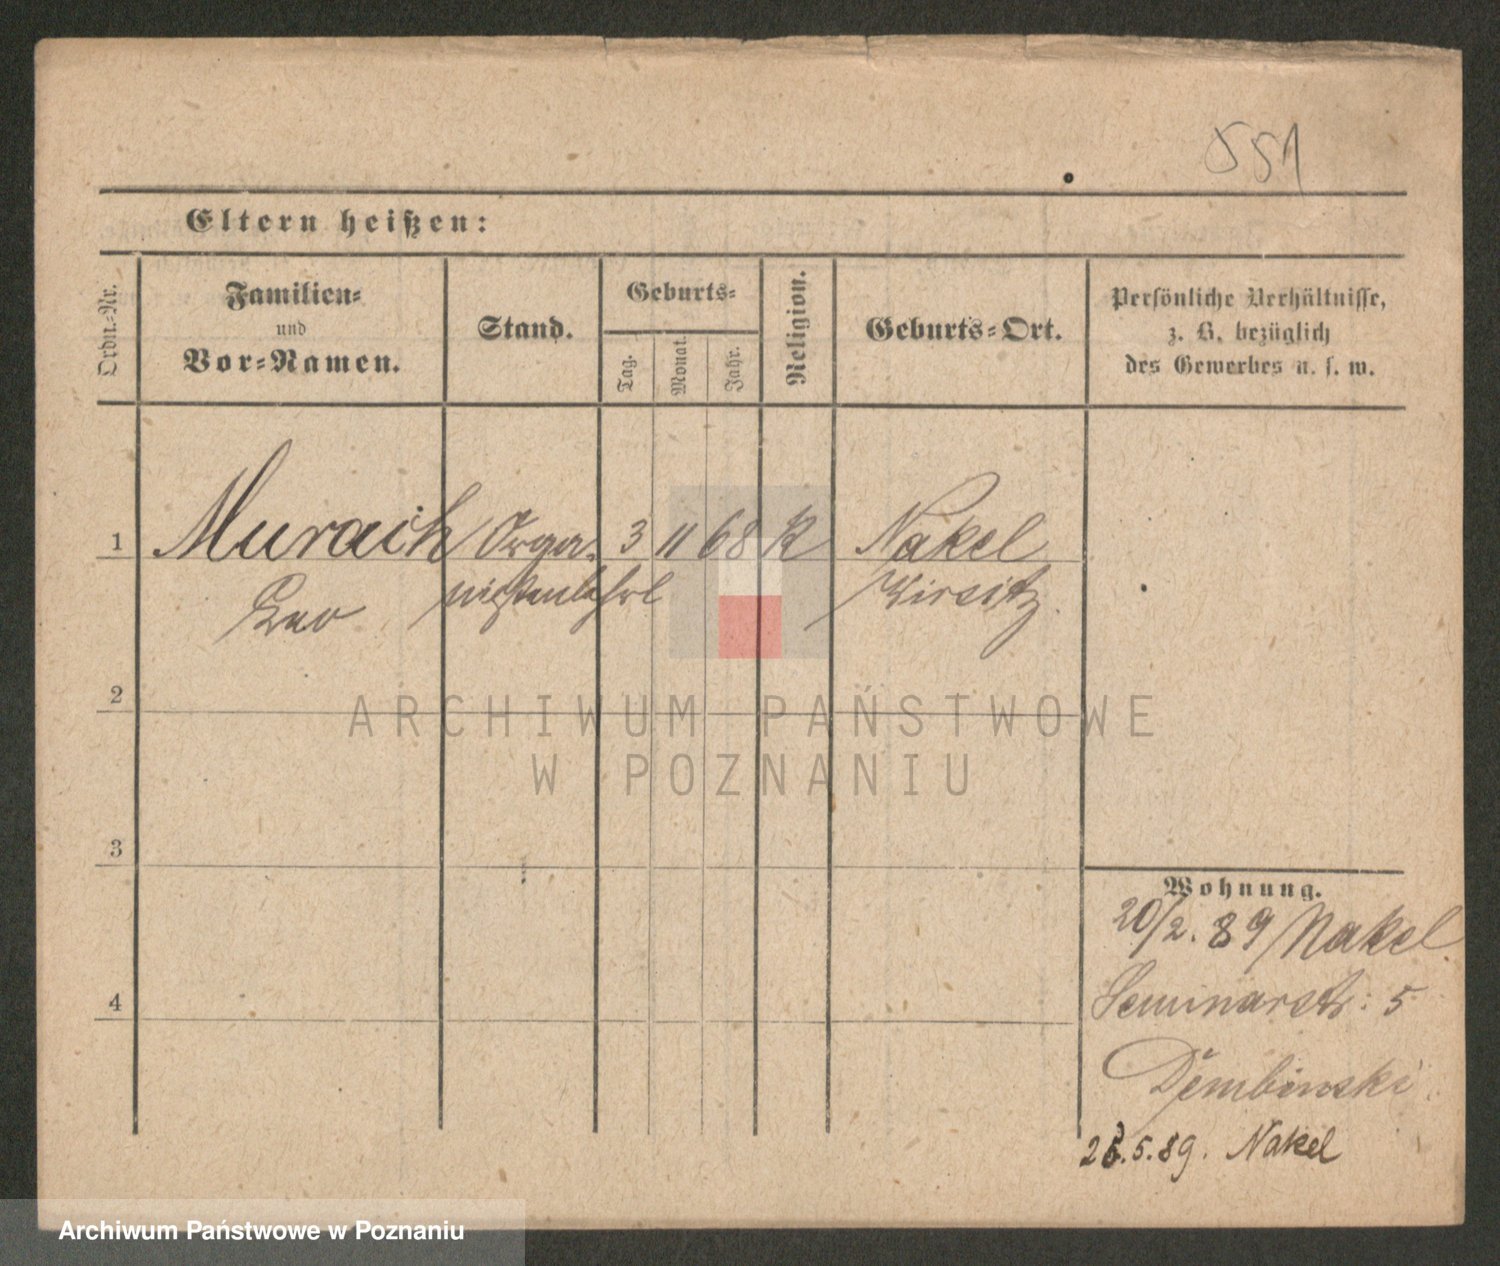 551
Eltern heißen:
Ordn.-Nr.
Familien-
und
Vor-Namen.
Stand.
Geburts-
Tag.
Monat.
Jahr.
Religion.
Geburts-Ort.
Persönliche Verhältnisse,
z. B. bezüglich
des Gewerbes u. s. w.
1 Murach Orga- 3 11 68 K Nakel
Leo nistenlehrl Wirsitz
2
ARCHIWUM PAŃSTWOWE
W POZNANIU
3
Wohnung.
20/2. 89 Nakel
Seminarstr: 5
4
Dembinski
5.89. Nakel
Archiwum Państwowe w Poznaniu